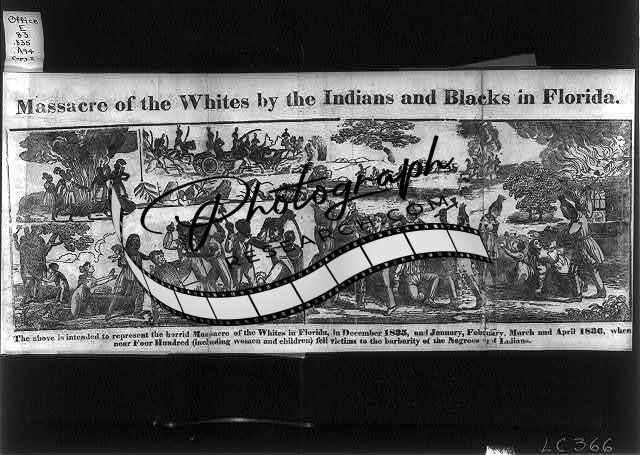 Office
E
83
.835
.A94
Copy 2
Massacre of the Whites by the Indians and Blacks in Florida.
Photographs
RESEARCH.COM
The above is intended to represent the horrid Massacre of the Whites in Florida, in December 1835, and January, February, March and April 1836, when
near Four Hundred (including women and children) fell victims to the barbarity of the Negroes and Indians.
LC 366